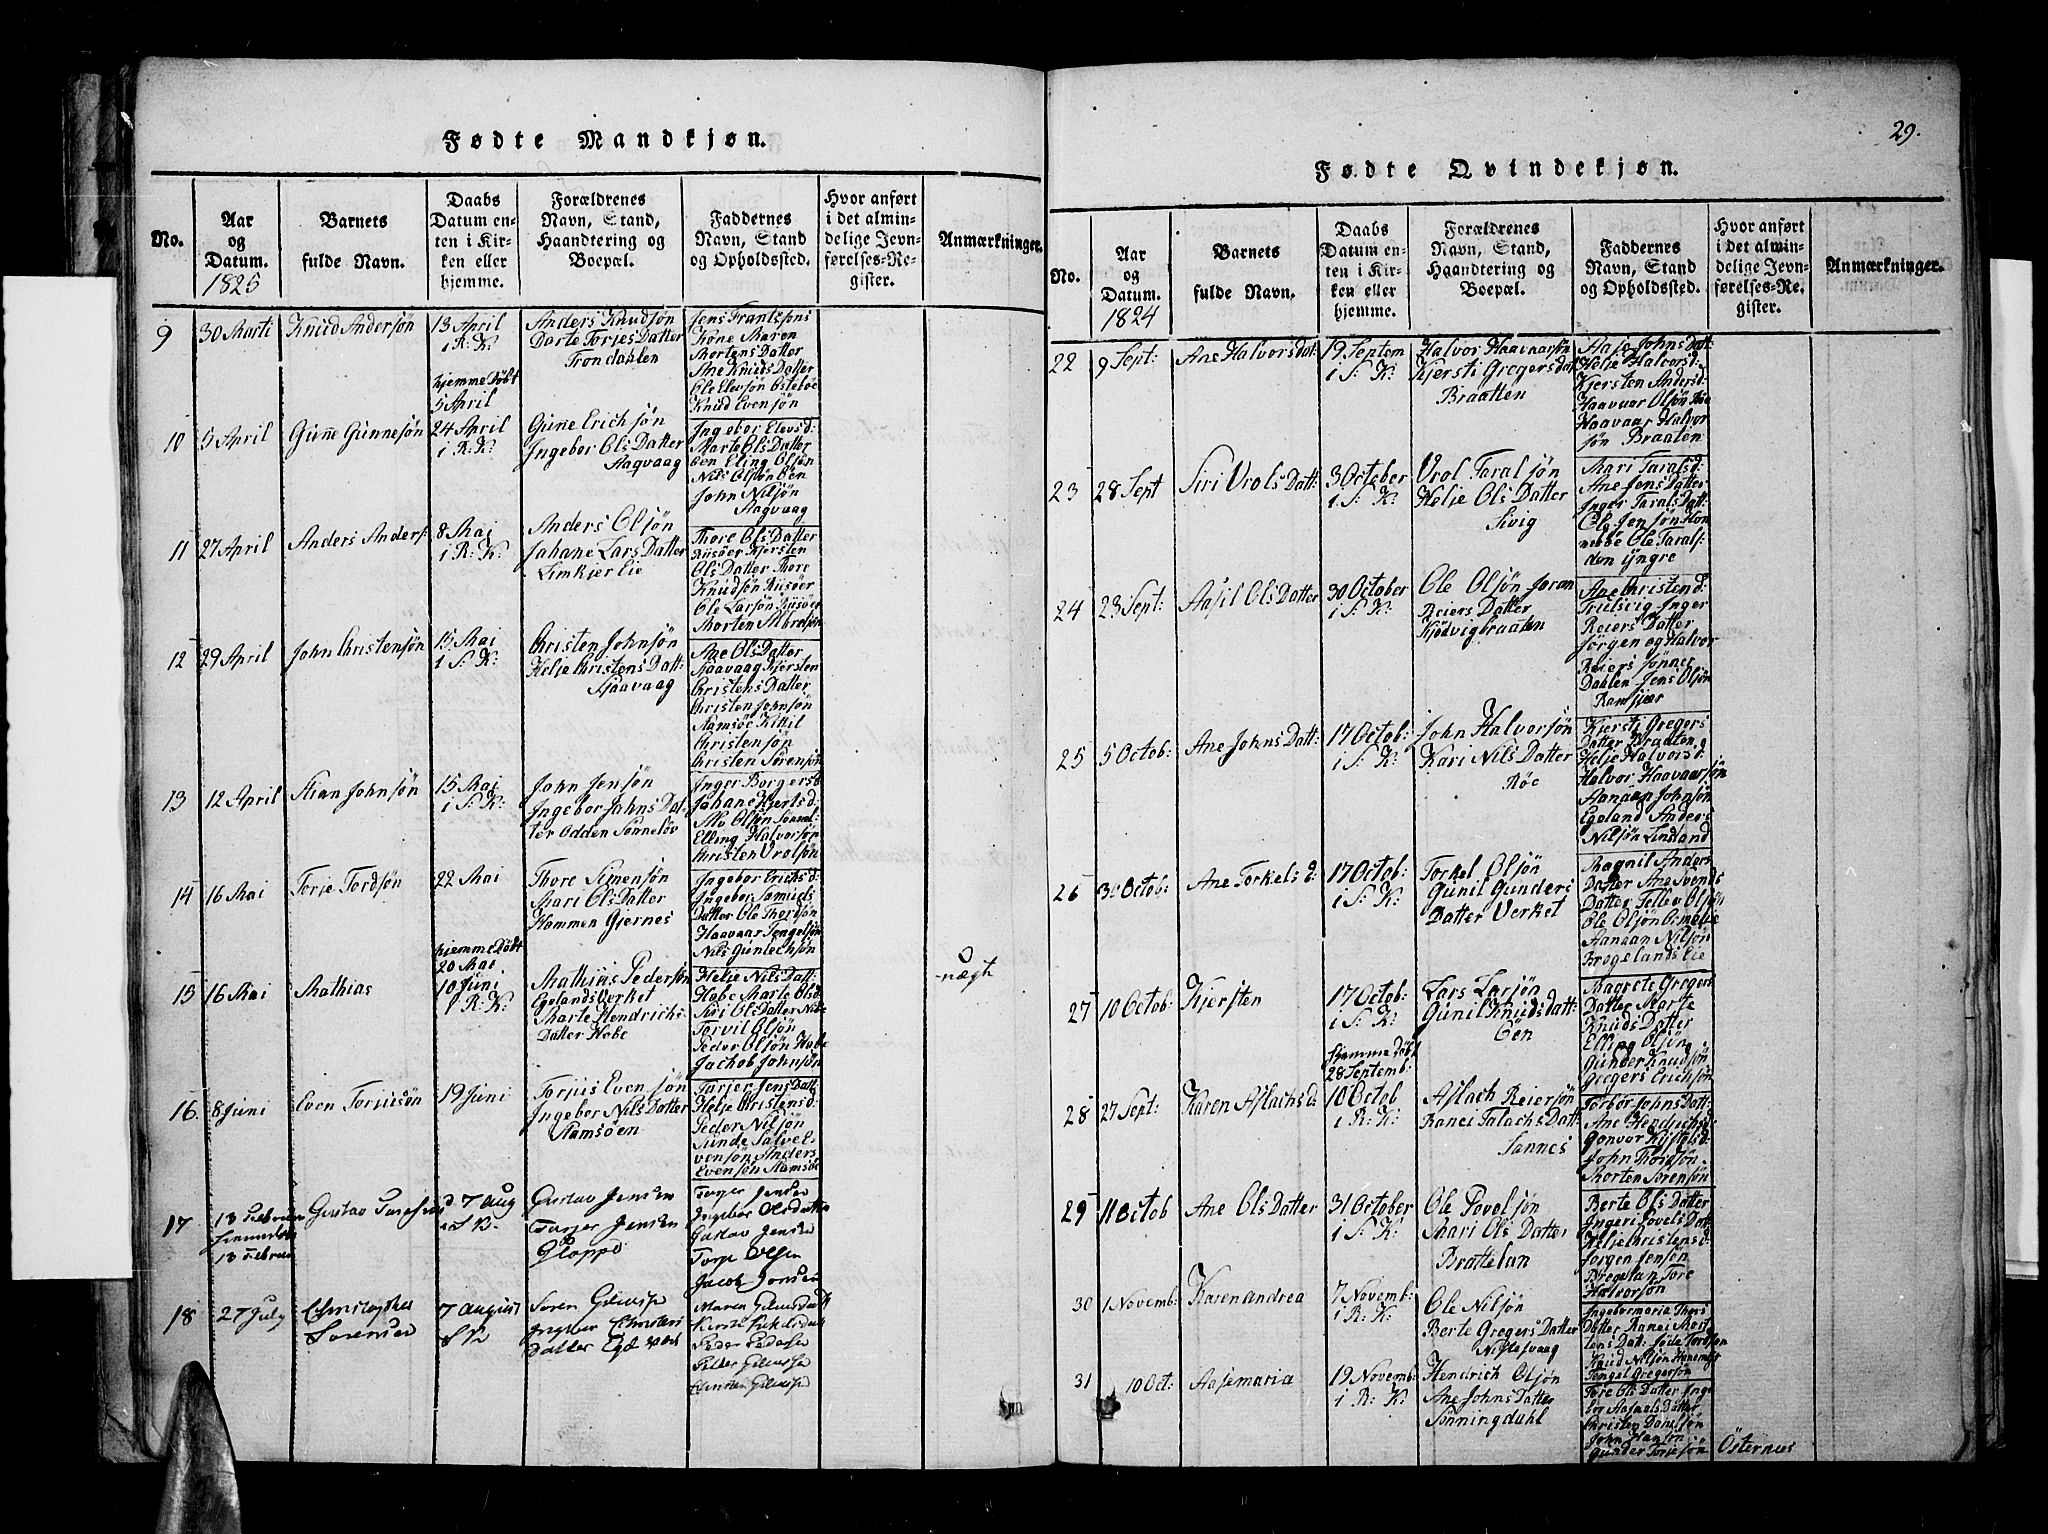 Fødte Mandkjøn.
No.
Aar
og
Datum.
1825
Barnets
fulde Navn.
Daabs
Datum en-
ten i Kir-
ken eller
hjemme.
Forældrenes
Navn, Stand,
Haandtering og
Boepæl.
Faddernes
Navn, Stand
og Opholdssted.
Hvor anført
i det almin-
delige Jevn-
førelses-Re-
gister.
Anmærkninger.
9
30 Marti
Knud Andersøn
13 April
i R: K:
Anders Knudsøn
Dorte Torjes Datter
Trondahlen
Jens Frantssøns
Kone Maren
Mortens Datter
Ane Knuds Datter
Ole Elevsøn Osteboe
Knud Evensøn
10
5 April
Gune Gunnesøn
hjemme Døbt
5 April
24 April
i R: K:
Gune Erichsøn
Ingebor Ols Datter
Aaqvaag
Ingebor Elevs d:
Marte Ols Datter
Een Eling Olsøn
Nils Olsøn Een
John Nilsøn
Aaqvaag
11
27 April
Anders Anders:
8 Mai
i R: K:
Anders Olsøn
Johane Lars Datter
Limkjer Eie
Thore Ols Datter
Riisöer Kjersten
Ols Datter Thore
Knudsøn Riisöer
Ole Larsøn Riisöer
Morten Albretsøn
12
29 April
John Christensøn
15 Mai
i S: K:
Christen Johnsøn
Helje Christens Datt:
Staavaag
Ane Ols Datter
Staavaag Kjersten
Christens Datter
Christen Johnsøn
Ramsøe Kittil
Christensøn
Christen Sörensøn
13
12 April
Stian Johnsøn
15 Mai
i S: K:
John Jensøn
Ingebor Johns Dat-
ter Odden Sønneløv
Inger Borgers d
Johane Kjerls d:
Alv Olsøn Sønnel:
Elling Halvorsøn
Christen Vrolsøn
14
16 Mai
Torje Tordsøn
22 Mai
Thore Simensøn
Mari Ols Datter
Hammen Gjernes
Ingebor Erichs d:
Ingebor Samuels
Datter Ole Thordsøn
Haavaar Tengelsøn
Nils Guntechsøn
15
16 Mai
Mathias
hjemme Døbt
20 Mai
10 Juni
i R: K:
Mathiis Pedersøn
Egelands Verket
Marte Hendrichs
Datter Hobe
Helje Nils Datt:
Hobe Marte Ols d:
Siri Ols Datter
Torvil Olsøn
Peder Olsøn Hobe
Jachob Johnsøn
nægt
16
8 Juni
Even Torjusøn
19 Juni
Torjus Evensøn
Ingebor Nils Datter
Ramsöen
Torjer Jens Datt
Helje Christens d:
Peder Nilsøn
Sunde Salvel
vensøn Anders
Evensøn Ramsöe
17
13 Februar
13 Februar
Gustav
7 Aug
Gustav Jensen
Torjer Jensen
Gloppe
Torjer Jensen
Ingebor Olsdatter
Gustav Jensen
Torje Olsen
Jacob Jonsen
18
27 July
Christopher
Sorensen
7 August
S K
Soren
Ingebor Christens
Datter
29.
Fødte Qvindekjøn.
No.
Aar
og
Datum.
1824
Barnets
fulde Navn.
Daabs
Datum en-
ten i Kir-
ken eller
hjemme.
Forældrenes
Navn, Stand,
Haandtering og
Boepæl.
Faddernes
Navn, Stand
og Opholdssted.
Hvor anført
i det almin-
delige Jevn-
førelses-Re-
gister.
Anmærkninger.
22
9 Sept:
Ane Halvors dat:
19 Septem
i S: K:
Halvor Haavaarsøn
Kjersti Gregers dat
Braatten
Aase Johns Datt
Helje Halvors d:
Kjersten Anders d:
Haavaar Olsøn
Haavaar Halvor
søn Braaten
23
28 Sept
Siri Vrols Datt:
3 October
i S: K:
Vrol Taralsøn
Helje Ols Datter
Sivig
Mari Tarals d:
Ane Jens Datter
Inger Tarals Datt:
Ole Jensøn Hon
nebbe Ole Tarals:
den yngre
24
23 Sept:
Aasil Ols Datter
30 October
i S: K:
Ole Olsøn Joran
Reiers Datter
Kjødvigbraaten
Ane Christen d:
Trulsvig Inger
Reiers Datter
Jörgen og Halvor
Reiers sønner
Dahlen Jens Olsøn
Ramsjær
25
5 Octob:
Ane Johns Datt:
17 Octob:
i S: K:
John Halvorsøn
Kari Nils Datter
Røe
Kjersti Gregers
Datter Braaten
Helje Halvors d:
Halvor Haavaarsøn
Aanaan Johnsøn
Egeland Anders
Nilsøn Lindland
26
3 October
Ane Torkels d:
17 Octob:
i S: K:
Torkel Olsøn
Gunil Gunders
Datter Verket
Magnil Anders
Datter Ane Svends
Datter Tellev Olsøn
Ole Olsøn
Aanaan Nilsøn
Brogelands Eie
27
10 Octob:
Kjersten
17 Octob:
i S: K:
Lars Larsøn
Gunil Knuds datt:
Een
Magrete Gregers
Datter Marte
Knuds Datter
Elling Olsøn
Gunder Knudsøn
Gregers Erichsøn
28
27 Sept:
Karen Aslachs d:
hjemme Døbt
28 Septemb:
10 Octob
i R: K:
Aslach Reiersøn
Ranei Talachs Datt:
Sannes
Torbor Johns Datt:
Ane Hendrichs d:
Gonvor Kistels d:
John Thordsøn
Morten Sörensøn
29
11 Octob
Ane Ols Datter
31 October
i S: K:
Ole Povelsøn
Mari Ols Datter
Brattelan
Berte Ols Datter
Ingeri Povels Datt
Helje Christens d:
Jorgen Jensøn
Bregelan Tore
Halvorsøn
30
1 Novemb:
Karen Andrea
7 Novemb:
i R: K:
Ole Nilsøn
Berte Gregers Datter
Nipesvaag
Ingebormaria Thors
Datter Ranei Mor
tens Datt: Jöde Tordsøn
Knud Nilsøn
Tengel Gregersøn
31
10 Oct:
Aasemaria
19 Novemb:
i R: K:
Hendrich Olsøn
Ane Johns Datter
Sonningdahl
Tore Ols Datter Inge
bor Aasuels Datter
Christen Danelsøn
John Hansøn
Gunder Torjesøn
Östernes